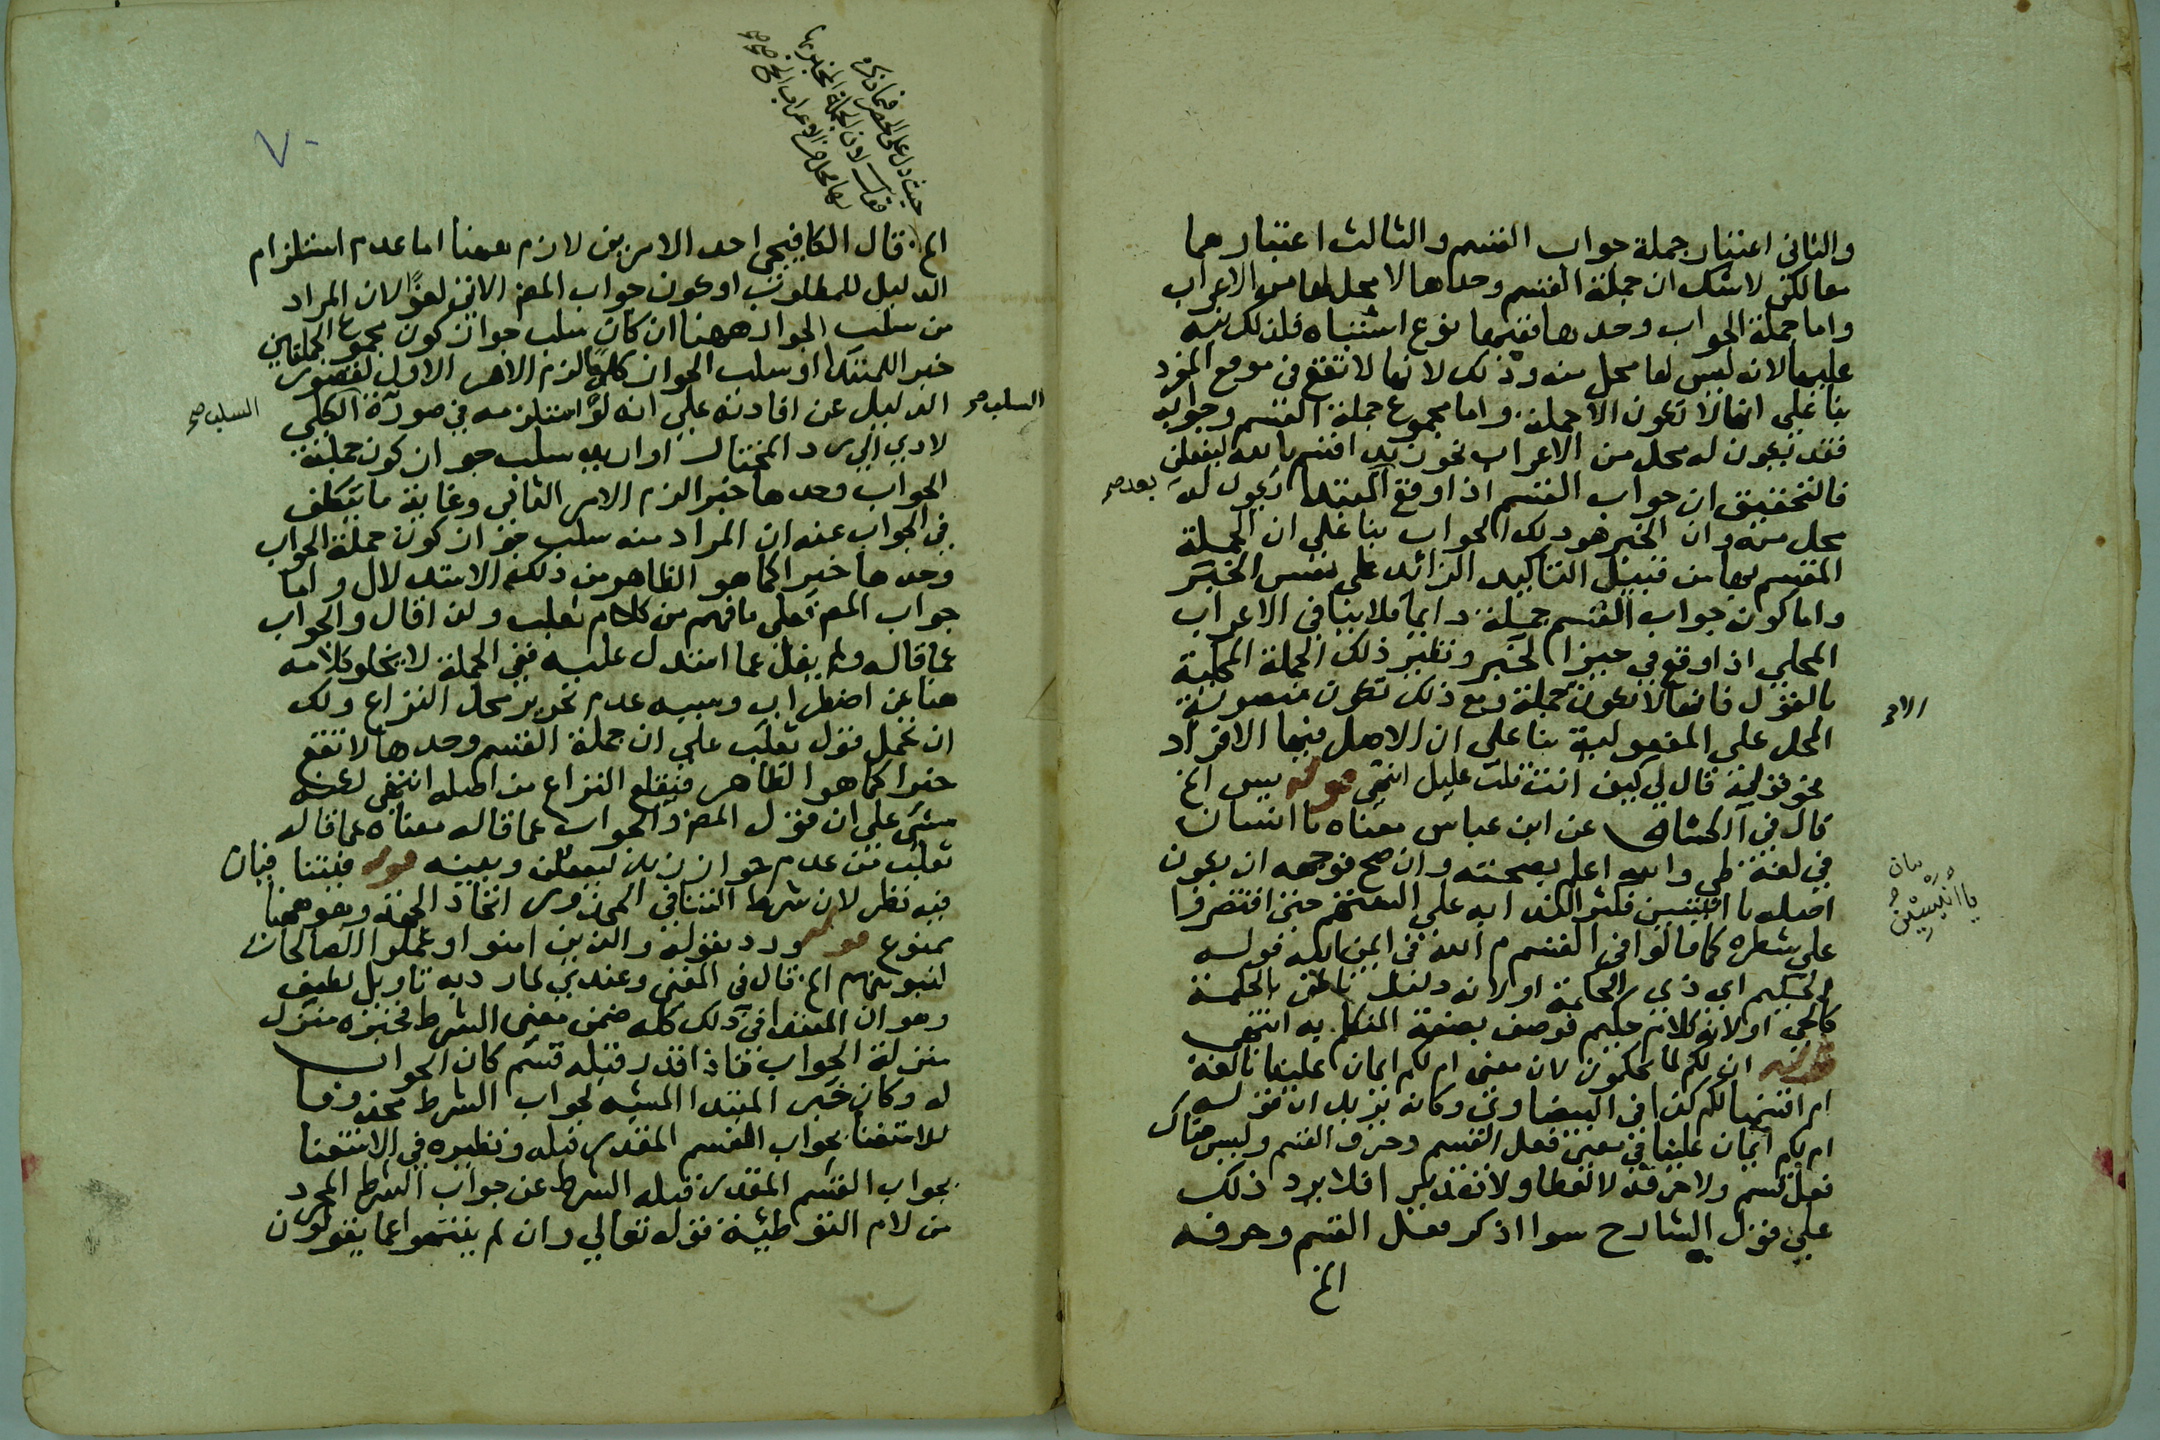 والثاني اعتبار جملة جواب القسم والثالث اعتبارهما
معا لكن لا شك ان جملة القسم وحدها لا محل لها من الاعراب
واما جملة الجواب وحدها ففيها نوع اشتباه فلذلك نبه
عليها لانه ليس لها محل منه وذلك لانها لا تقع في موقع المفرد
بنا على انها لا تكون الا جملة واما مجموع جملة القسم وجوابه
فقد يكون له محل من الاعراب نحو زيد اقسم بالله ليفعلن
فالتحقيق ان جواب القسم اذا وقع المبتدا يكون له
بعد صح
محل منه وان الخبر هو ذلك الجواب بنا على ان الجملة
المقسم بها من قبيل التاكيد الزائد على نفس الخبر
واما كون جواب القسم جملة دايما فلا ينافي الاعراب
المحلي اذا وقع في حيز الخبر ونظير ذلك الجملة المحكية
بالقول فانها لا تكون جملة ومع ذلك تكون منصوبة
الا صح
المحل على المفعولية بنا على ان الاصل فيها الافراد
نحو قوله قال لي كيف انت قلت عليل انتهى قوله يس الخ
قال في الكشاف عن ابن عباس معناه يا انسان
في لغة طي والله اعلم بصحته وان صح فوجهه ان يكون
اصله يا انيسين فكثر الندا به على السنتهم حتى اقتصروا
بيان
يا انيسين
على شطره كما قالوا في القسم م الله في ايمن الله قوله
الحكيم اي ذي الحكمة او لانه دليل ناطق بالحكمة
كالحي او لانه كلام حكيم فوصف بصفة المتكلم به انتهى
قوله ان لكم لما تحكمون لان معنى ام لكم ايمان علينا بالغة
ام اقسمنا لكم كذا في البيضاوي وكانه يريد ان قوله
ام لكم ايمان علينا في معنى فعل القسم وحرف القسم وليس هناك
فعل قسم ولا حرفه لا لفظا ولا تقديرا فلا يرد ذلك
على قول الشارح سوا ذكر فعل القسم وحرفه
الخ
٧٠
حيث دل على الحصر فيما ذكره
لان الجملة المخبر بها
لها محل من الاعراب الخ صح صح
الخ قال الكافيجي احد الامرين لازم ههنا اما عدم استلزام
الدليل للمطلوب او كون جواب المصنف الاتي لغوا لان المراد
من سلب الجواز ههنا ان كان سلب جواز كون مجموع الجملتين
خبرا للمبتدا او سلب الجواز كليا لزم الامر الاول لقصور
الدليل عن افادته على انه لو استلزمه في صورة الكلي
السلب صح
السلب صح
لادي الى رد المختار او ان يريد سلب جواز كون جملة
الجواب وحدها خبرا لزم الامر الثاني وغاية ما يتكلف
في الجواب عنه ان المراد منه سلب جواز كون جملة الجواب
وحدها خبرا كما هو الظاهر من ذلك الاستدلال واما
جواب المصنف فعلى ما فهم من كلام ثعلب ولذا قال والجواب
عما قاله ولم يقل عما استدل عليه ففي الجملة لا يخلو كلامه
هنا عن اضطراب وسببه عدم تحرير محل النزاع ولك
ان تحمل قول ثعلب على ان جملة القسم وحدها لا تقع
خبرا كما هو الظاهر فيقلع النزاع من اصله انتهى لكنه
مشى على ان قول المصنف والجواب عما قاله معناه عما قاله
ثعلب من عدم جواز زيد ليفعلن وبعينه قوله فبينا فبان
فيه نظر لان شرط التنافي المحذور اتحاد الجهة وهو ههنا
ممنوع قوله ورد بقوله والذين امنوا وعملوا الصالحات
لنبوئنهم الخ قال في المغني وعندي لما رد به تاويل لطيف
وهو ان المبتدا في ذلك كله ضمن معنى الشرط فخبره منزل
منزلة الجواب فاذا قدر قبله قسم كان الجواب
له وكان خبر المبتدا المشبه لجواب الشرط محذوفا
للاستغنا بجواب القسم المقدر قبله ونظيره في الاستغنا
بجواب القسم المقدر قبله الشرط عن جواب الشرط المجرد
من لام التوطئة قوله تعالى وان لم ينتهوا عما يقولون